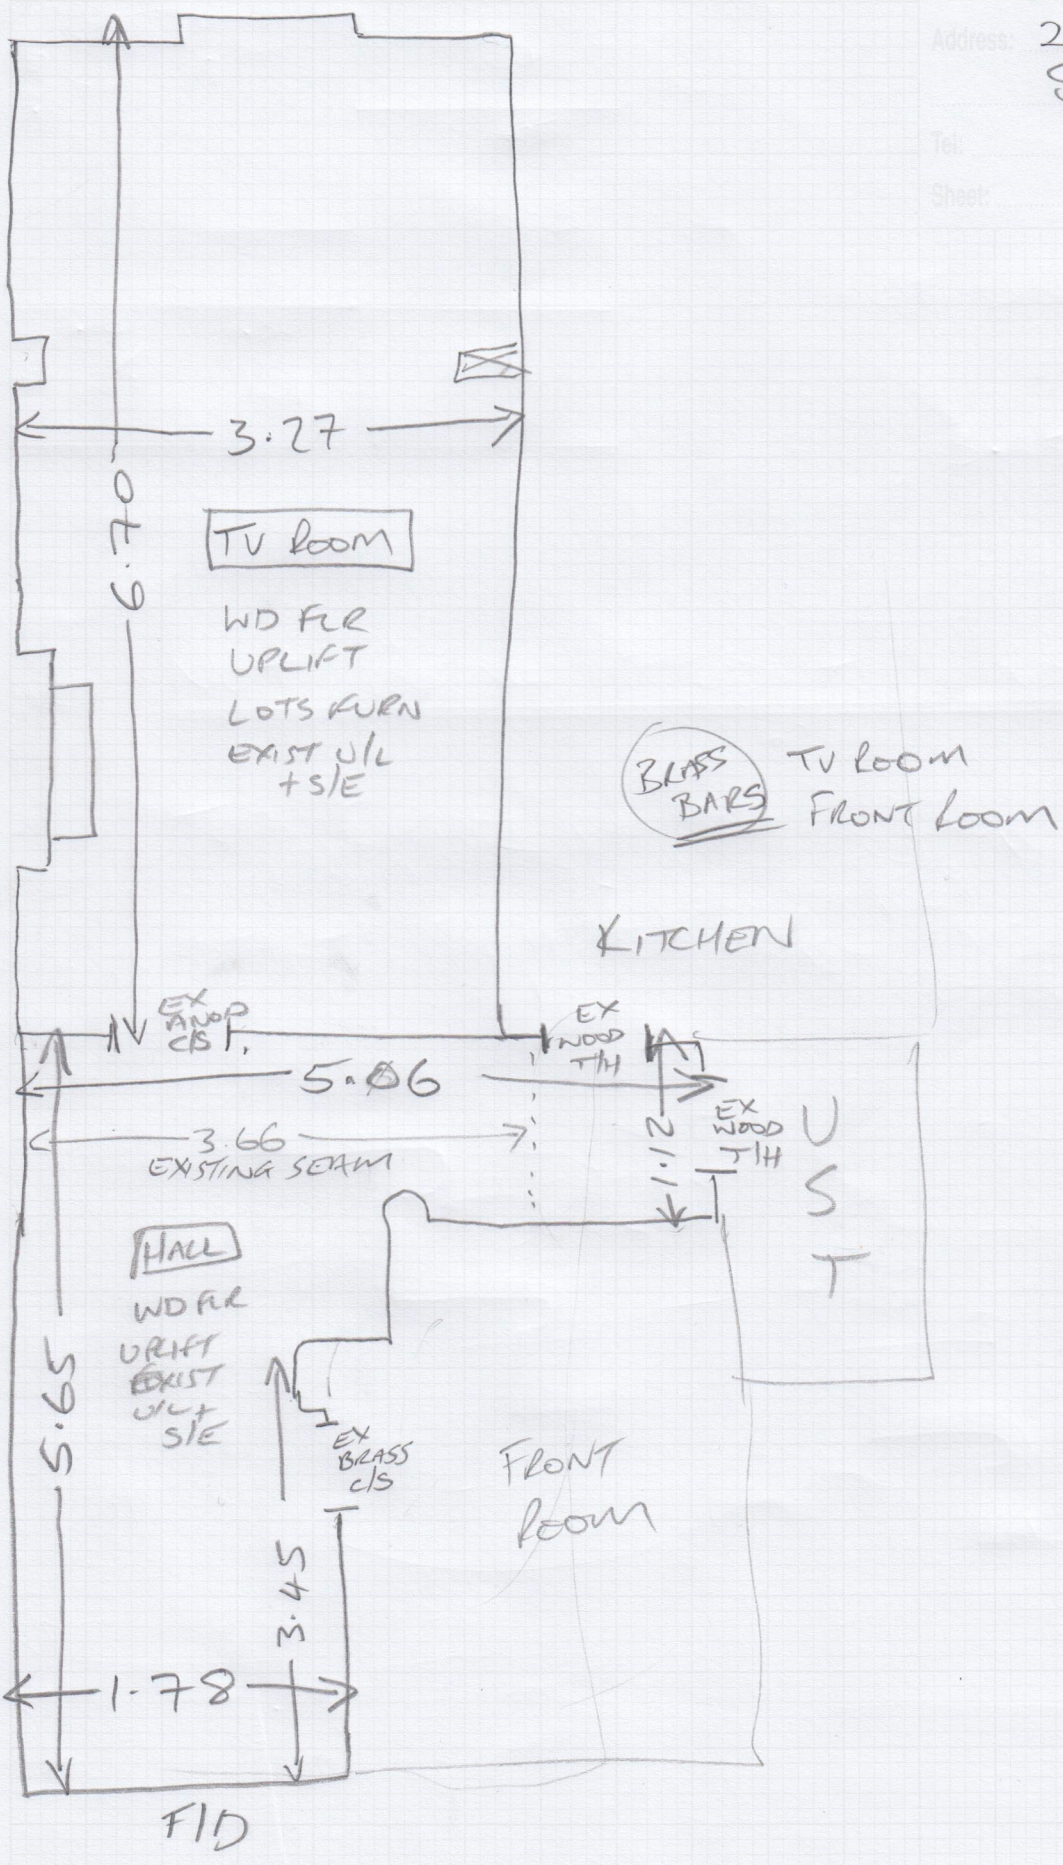 Address: 2
Tel:
Sheet:
3.27
6.70
TV ROOM
WD FLR
UPLIFT
LOTS FURN
EXIST U/L
+ S/E
BRASS
BARS
TV ROOM
FRONT ROOM
KITCHEN
EX
ANOD
C/S
EX
WOOD
T/H
5.06
3.66
EXISTING SEAM
1.12
EX
WOOD
T/H
U
S
T
HALL
WD FLR
UPLIFT
EXIST
U/L +
S/E
5.65
EX
BRASS
C/S
FRONT
ROOM
3.45
1.78
F/D